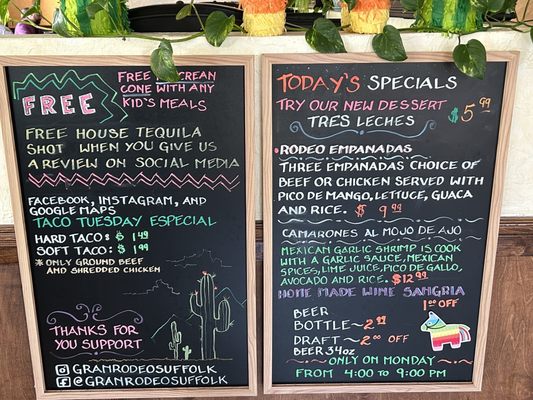 FREE
FREE ICECREAN
CONE WITH ANY
KID'S MEALS
FREE HOUSE TEQUILA
SHOT WHEN YOU GIVE US
A REVIEW ON SOCIAL MEDIA
FACEBOOK, INSTAGRAM, AND
GOOGLE MAPS
TACO TUESDAY ESPECIAL
HARD TACO: $ 1.49
SOFT TACO: $ 1.99
* ONLY GROUND BEEF
AND SHREDDED CHICKEN
THANKS FOR
YOU SUPPORT
@GRANRODEOSUFFOLK
@GRANRODEOSUFFOLK
TODAY'S SPECIALS
TRY OUR NEW DESSERT
TRES LECHES $5.99
RODEO EMPANADAS
THREE EMPANADAS CHOICE OF
BEEF OR CHICKEN SERVED WITH
PICO DE MANGO, LETTUCE, GUACA
AND RICE. $ 9.99
CAMARONES AL MOJO DE AJO
MEXICAN GARLIC SHRIMP IS COOK
WITH A GARLIC SAUCE, MEXICAN
SPICES, LIME JUICE, PICO DE GALLO,
AVOCADO AND RICE. $12.99
HOME MADE WINE SANGRIA
1.00 OFF
BEER
BOTTLE~2.49
DRAFT~2.00 OFF
BEER 34oz
~ONLY ON MONDAY
FROM 4:00 TO 9:00 PM